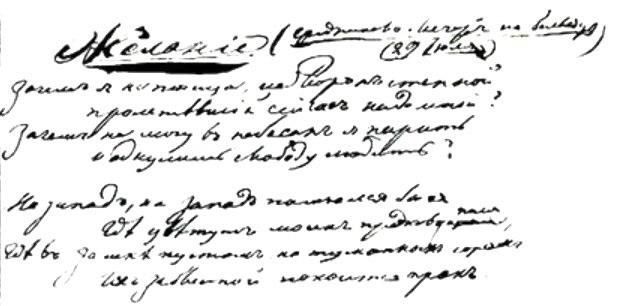 Желаніе (Средниково. Вечеръ на бельведерѣ)
(29 Июля)
Зачемъ я не птица, не воронъ степной
пролетѣвшій сейчасъ надо мной?
Зачемъ не могу въ небесахъ я парить
И одну лишь свободу любить?
На западъ, на западъ помчался бы я
Гдѣ цвѣтутъ моихъ предковъ поля,
Гдѣ въ замкѣ пустомъ, на туманныхъ горахъ
Ихъ забвенной покоится прахъ.